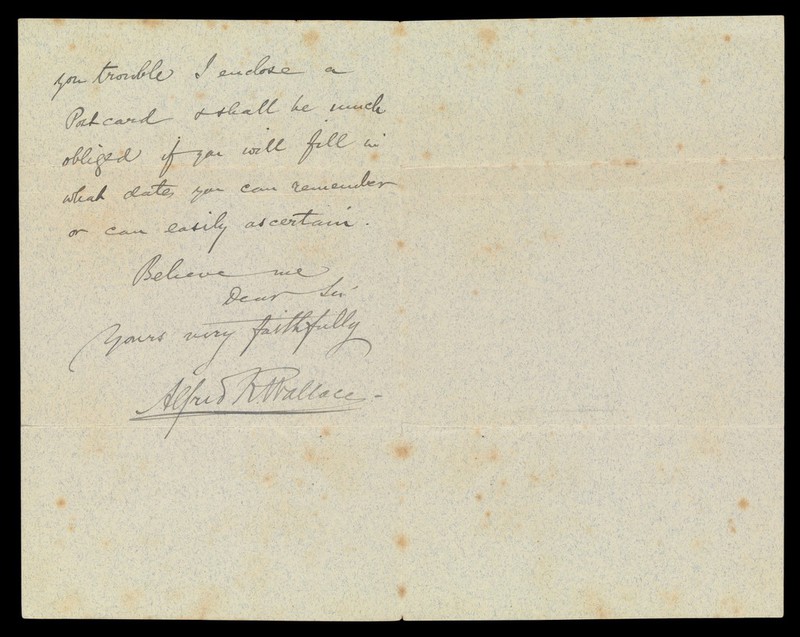 you trouble I enclose a
Postcard & shall be much
obliged if you will fill in
what dates you can remember
or can easily ascertain.
Believe me
Dear Sir
Yours very faithfully
Alfred R. Wallace